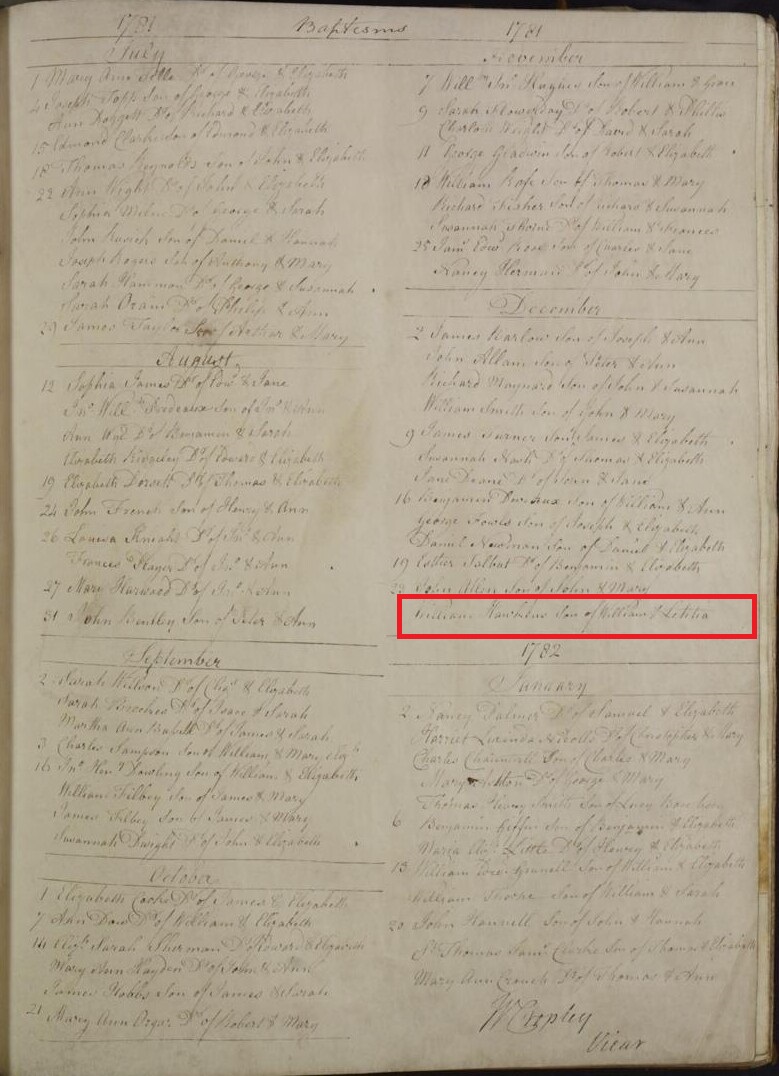 1781 Baptisms 1781
July
1 Mary Ann Dr of George & Elizabeth
4 Joseph Topps Son of George & Elizabeth
Ann Doggett Dr of Richard & Elizabeth
15 Edmond Clarke Son of Edmond & Elizabeth
18 Thomas Reynolds Son of John & Elizabeth
22 Ann Wight Dr of John & Elizabeth
Sophia Dr of George & Sarah
John Son of Daniel & Hannah
Joseph Rogers Son of Anthony & Mary
Sarah Hammon Dr of George & Susannah
Sarah Oram Dr of Philip & Ann
29 James Taylor Son of Arthur & Mary
August
12 Sophia James Dr of Edwd & Jane
Jno Willm Son of Jno & Ann
Ann Dr of Benjamin & Sarah
Elizabeth Kingsley Dr of Edward & Elizabeth
19 Elizabeth Dr of Thomas & Elizabeth
24 John French Son of Henry & Ann
26 Louisa Dr of Jno & Ann
Frances Player Dr of Jno & Ann
27 Mary Harwood Dr of Jno & Ann
31 John Bentley Son of Peter & Ann
September
2 Sarah Watson Dr of Chas & Elizabeth
Sarah Brookes Dr of Isaac & Sarah
Martha Ann Dr of James & Sarah
3 Charles Sampson Son of William & Mary
16 Jno Henry Dowling Son of William & Elizabeth
William Filbey Son of James & Mary
James Filbey Son of James & Mary
Susannah Dwight Dr of John & Elizabeth
October
1 Elizabeth Cooke Dr of James & Elizabeth
7 Ann Dow Dr of William & Elizabeth
14 Sarah Sherman Dr of Edward & Elizabeth
Mary Ann Hayden Dr of John & Ann
James Hobbs Son of James & Sarah
21 Mary Ann Dr of Robert & Mary
November
7 Willm Jno Hughes Son of William & Grace
9 Sarah Flowerday Dr of Robert & Phillis
Charlotte Wright Dr of David & Sarah
11 George Gladwin Son of Robert & Elizabeth
18 William Rofe Son of Thomas & Mary
Richard Fisher Son of Richard & Susannah
Susannah Thorn Dr of William & Frances
25 Saml Edwd Rose Son of Charles & Jane
Nancy Dr of John & Mary
December
2 James Barlow Son of Joseph & Ann
John Allam Son of Peter & Ann
Richard Maynard Son of John & Susannah
William Smith Son of John & Mary
9 James Turner Son of James & Elizabeth
Susannah Nash Dr of Thomas & Elizabeth
Jane Deane Dr of John & Jane
16 Benjamin Deveaux Son of William & Ann
George Fowles Son of Joseph & Elizabeth
Daniel Newman Son of Daniel & Elizabeth
19 Esther Talbot Dr of Benjamin & Elizabeth
23 John Allen Son of John & Mary
William Hawkins Son of William & Letitia
1782
January
2 Nancy Palmer Dr of Samuel & Elizabeth
Harriet Lucinda Dr of Christopher & Mary
Charles Son of Charles & Mary
Mary Dr of George & Mary
Thomas Henry Smith Son of Lucy
6 Benjamin Giffin Son of Benjamin & Elizabeth
Maria Little Dr of Henry & Elizabeth
13 William Gunnell Son of William & Elizabeth
William Thorpe Son of William & Sarah
20 John Hannell Son of John & Hannah
Thomas Saml Clarke Son of Thomas & Elizabeth
Mary Ann Crouch Dr of Thomas & Ann
W Cropley
Vicar